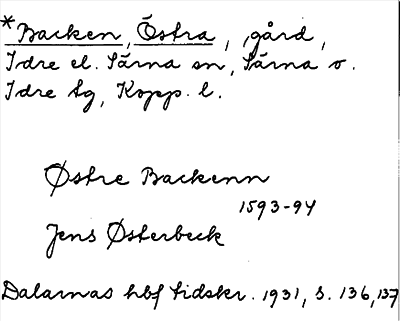 *Backen, Östra, gård,
Idre el. Särna sn, Särna o.
Idre tg, Kopp. l.
Østre Backenn
1593-94
Jens Østerbeck
Dalarnas hbf tidskr. 1931, s. 136, 137